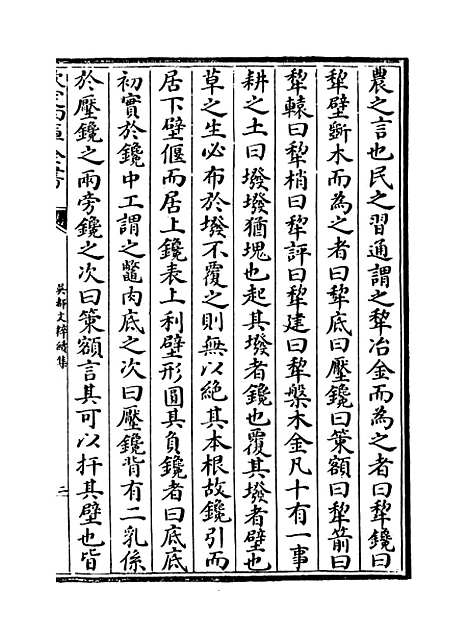 農之言也民之習通謂之犂冶金而為之者曰犂鑱曰
犂壁斵木而為之者曰犂底曰壓鑱曰策額曰犂箭曰
犂轅曰犂梢曰犂評曰犂建曰犂槃木金凡十有一事
耕之土曰墢墢猶塊也起其墢者鑱也覆其墢者壁也
草之生必布於墢不覆之則無以絕其本根故鑱引而
居下壁偃而居上鑱表上利壁形圓其負鑱者曰底底
初實於鑱中工謂之鼈肉底之次曰壓鑱背有二乳係
於壓鑱之兩旁鑱之次曰策額言其可以扞其壁也皆
吳都文粹續集
二